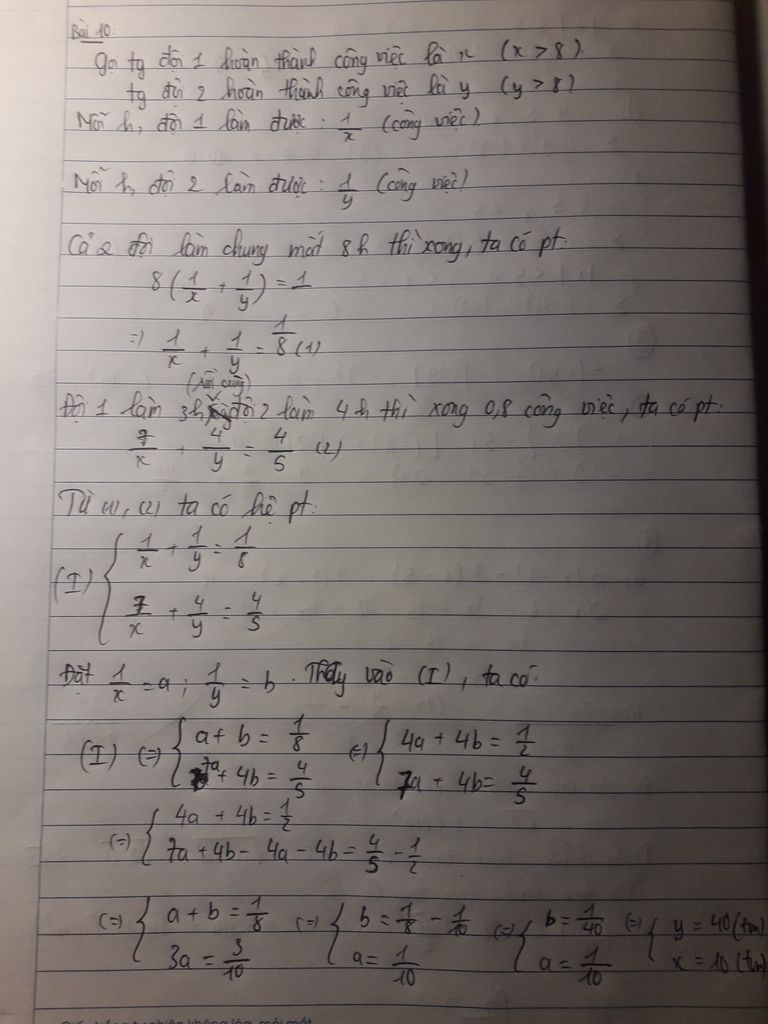 Bài 10:
Gọi tg đội 1 hoàn thành công việc là x (x > 8)
tg đội 2 hoàn thành công việc là y (y > 8)
Mỗi h, đội 1 làm được: 1/x (công việc)
Mỗi h, đội 2 làm được: 1/y (công việc)
Cả 2 đội làm chung mất 8h thì xong, ta có pt:
8(1/x + 1/y) = 1
=> 1/x + 1/y = 1/8 (1)
Đội 1 làm 3h (rồi cùng) đội 2 làm 4h thì xong 0,8 công việc, ta có pt:
7/x + 4/y = 4/5 (2)
Từ (1), (2) ta có hệ pt:
(I) { 1/x + 1/y = 1/8
7/x + 4/y = 4/5
Đặt 1/x = a ; 1/y = b . Thay vào (I), ta có:
(I) (=) { a + b = 1/8 (=) { 4a + 4b = 1/2
7a + 4b = 4/5 7a + 4b = 4/5
(=) { 4a + 4b = 1/2
7a + 4b - 4a - 4b = 4/5 - 1/2
(=) { a + b = 1/8 (=) { b = 1/8 - 1/10 (=) { b = 1/40 (=) { y = 40 (tm)
3a = 3/10 a = 1/10 a = 1/10 x = 10 (tm)